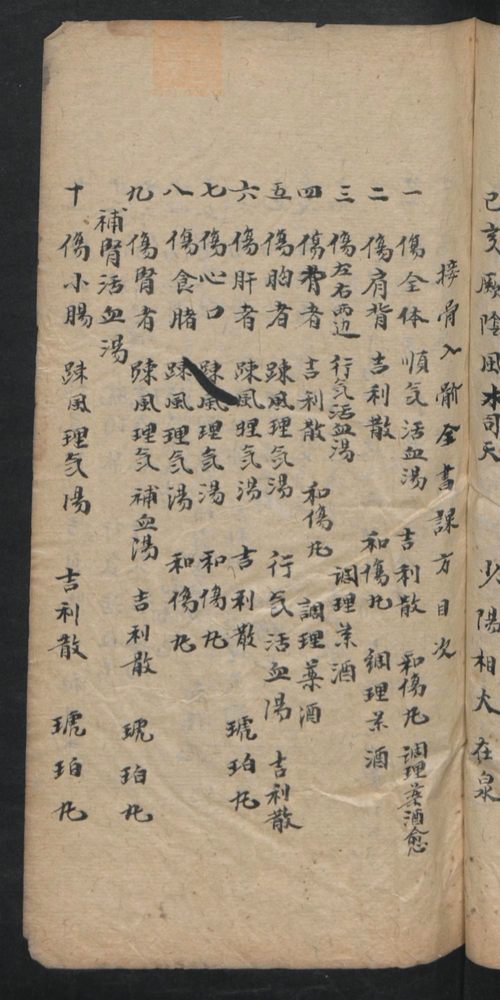 己亥厥陰風木司天 少陽相火在泉
接骨入骱全書課方目次
一 傷全体 順気活血湯 吉利散 和傷丸 調理藥酒愈
二 傷肩背 吉利散 和傷丸 調理茶酒
三 傷左右兩边 行気活血湯 調理茶酒
四 傷脊者 吉利散 和傷丸 調理藥酒
五 傷胸者 踈風理気湯 行気活血湯 吉利散
六 傷肝者 踈風理気湯 吉利散 琥珀丸
七 傷心口 踈風理気湯 和傷丸
八 傷食腊 踈風理気湯 和傷丸
九 傷腎者 踈風理気補血湯 吉利散 琥珀丸
補腎活血湯
十 傷小腸 踈風理気湯 吉利散 琥珀丸